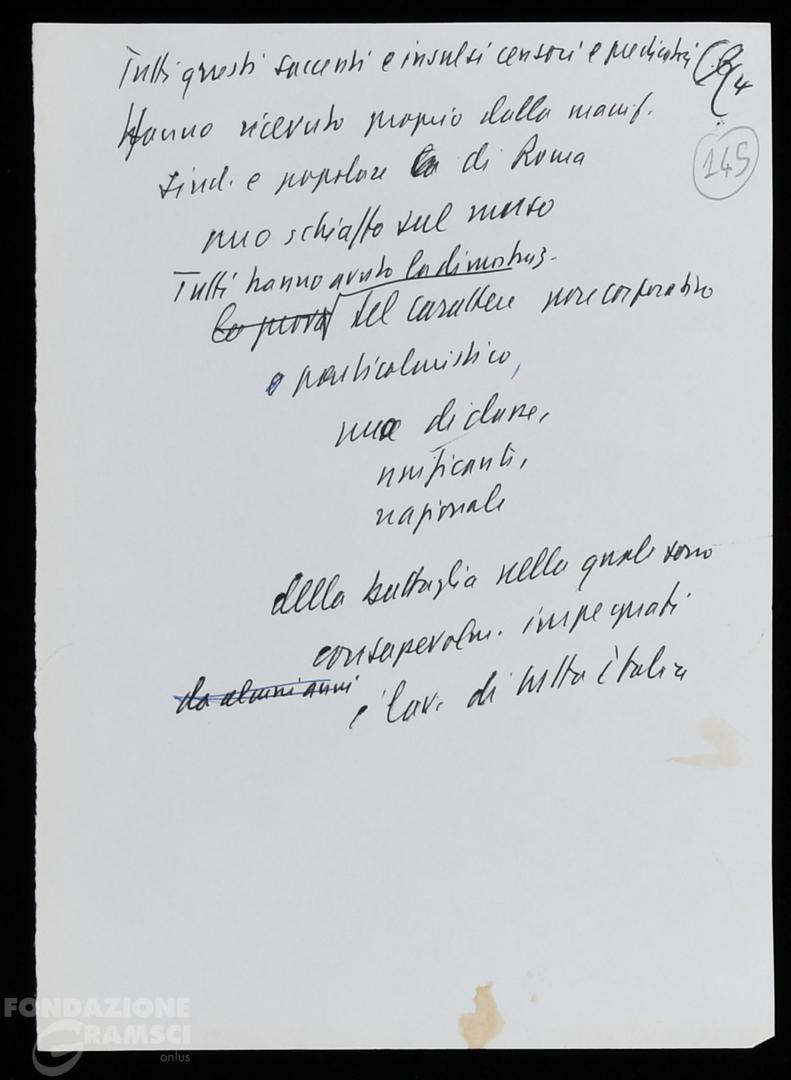 Tutti questi saccenti e insulsi censori e predicatori
4
145
Hanno ricevuto proprio dalla manif.
sind. e popolare la di Roma
uno schiaffo sul muso
Tutti hanno avuto la dimostraz.
la prova del carattere non corporativo
o particolaristico,
ma di classe,
unificante,
nazionale
della battaglia nella quale sono
consapevolm. impegnati
da alcuni anni
i lav. di tutta Italia
FONDAZIONE
GRAMSCI
onlus